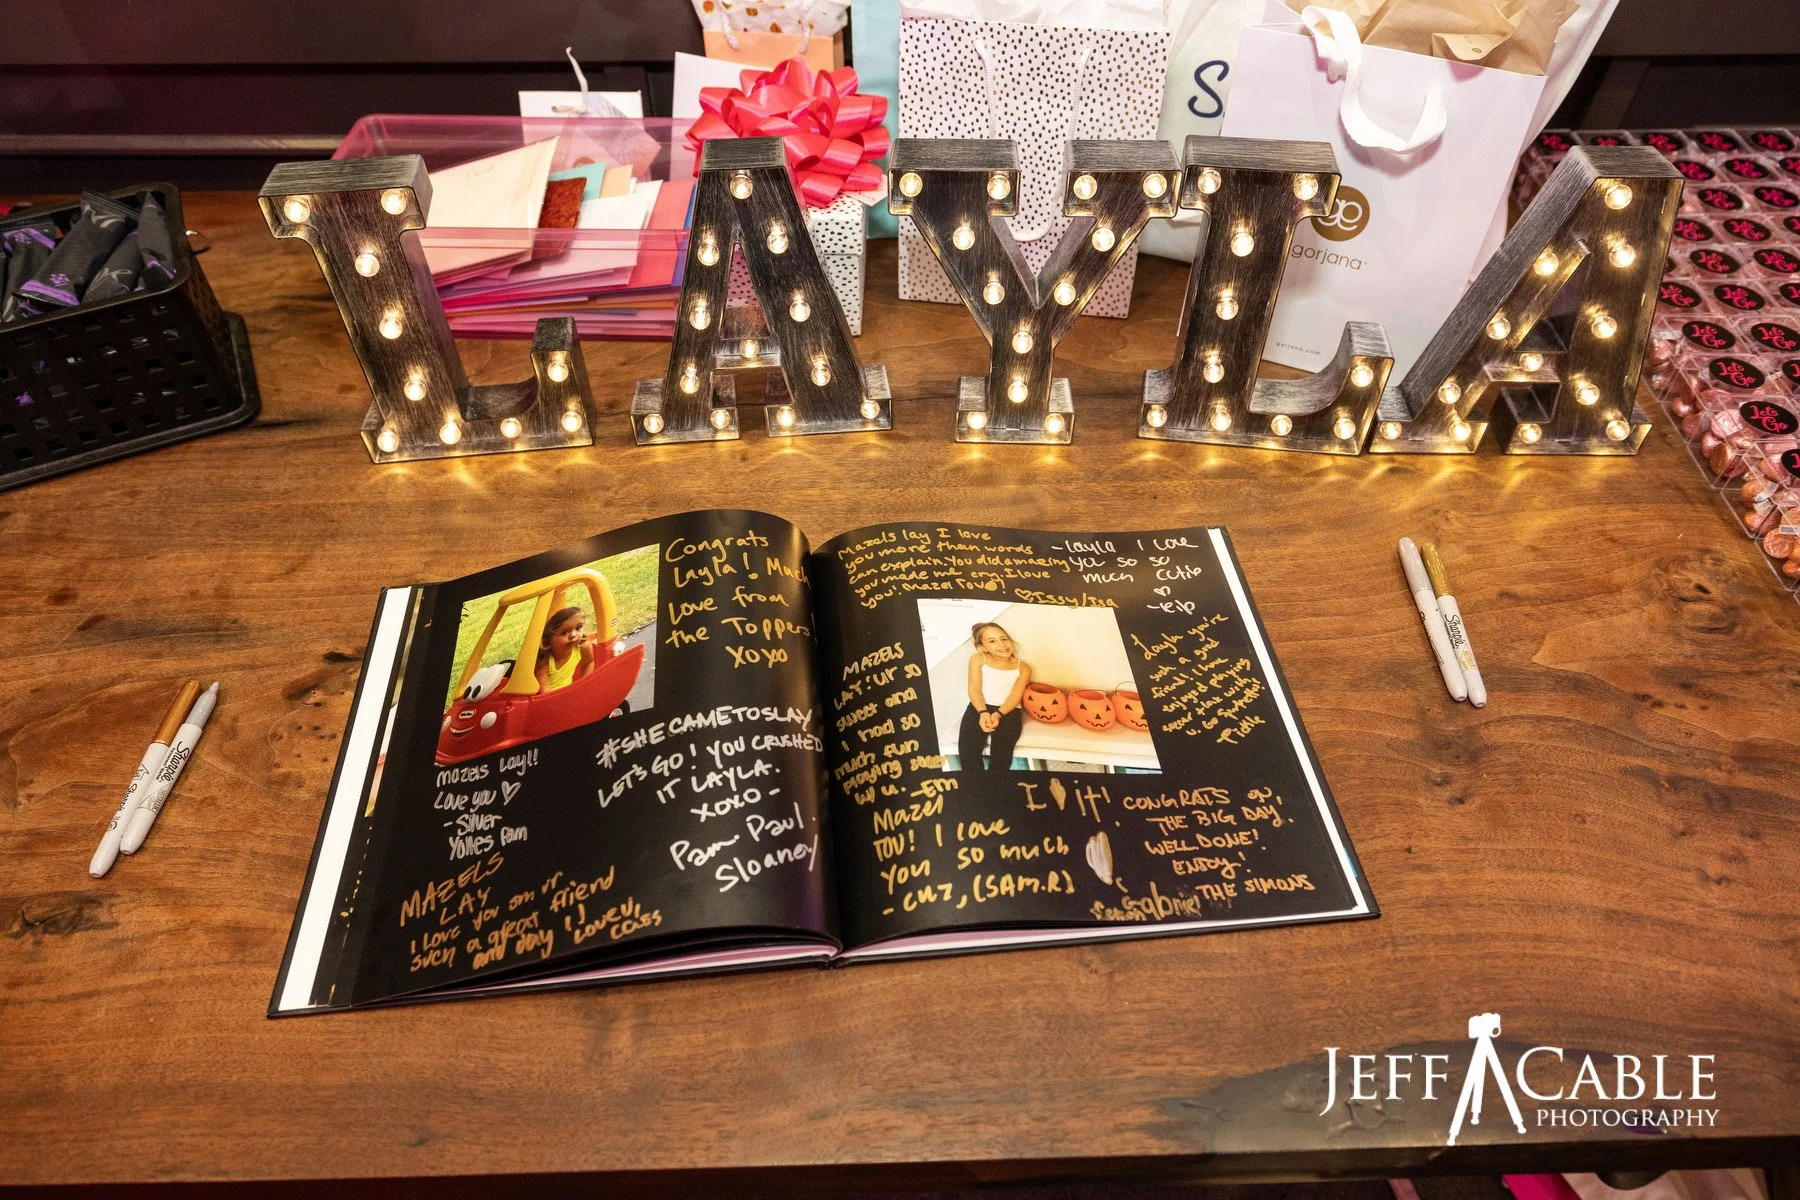 S
LAYLA
ge
gorjana
gorjana.com
Let's
Go
Congrats
Layla! Much
Love from
the Toppers!
XOXO
Mazels Layl!!
Love you ♡
- Silver
Yolles fam
#SHECAMETOSLAY
LET'S GO! YOU CRUSHED
IT LAYLA.
XOXO -
Pam Paul
Sloaney
MAZELS
LAY
I love you
such a great friend
and day! I love u,
Cass
Mazels lay I love
you more than words
can explain. You did amazing
you made me cry. I love
you! Mazel Tov!
♡Issy/Isa
-Layla I love
you so so
much cutie
♡
MAZELS
LAY! Ur so
sweet and
I had so
much fun
playing
w/ u. -Em
Layla you're
such a good
friend! I love
enjoyed playing
soccer with
Mazel
TOV! I love
you so much
- cuz, (SAM.R)
I it!
Gabriel
CONGRATS on
THE BIG DAY.
WELL DONE!
ENJOY!
THE SIMONS
Sharpie
Sharpie
JEFF CABLE
PHOTOGRAPHY